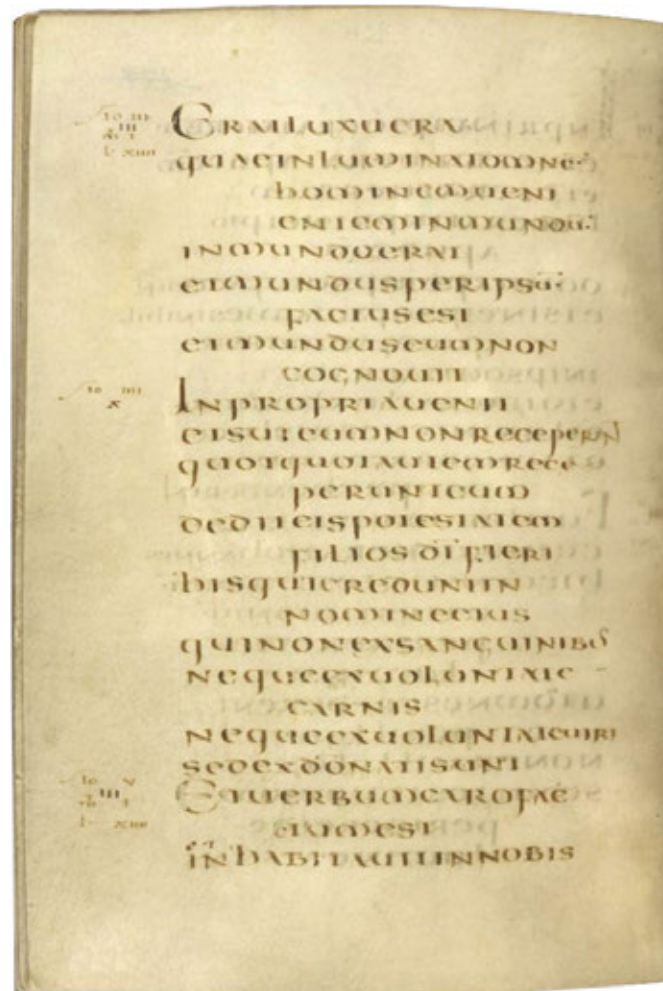 ERAT LUX UERA
QUAE INLUMINAT OMNE
HOMINEM UENI
ENTEM IN MUNDU
IN MUNDO ERAT
ET MUNDUS PER IPSU
FACTUS EST
ET MUNDUS EUM NON
COGNOUIT
IN PROPRIA UENIT
ET SUI EUM NON RECEPERUN
QUOTQUOT AUTEM RECE
PERUNT EUM
DEDIT EIS POTESTATEM
FILIOS DI FIERI
HIS QUI CREDUNT IN
NOMINE EIUS
QUI NON EX SANGUINIB
NEQUE EX UOLONTATE
CARNIS
NEQUE EX UOLUNTATE UIRI
SED EX DO NATI SUNT
ET UERBUM CARO FAC
TUM EST
IN HABITAUIT IN NOBIS